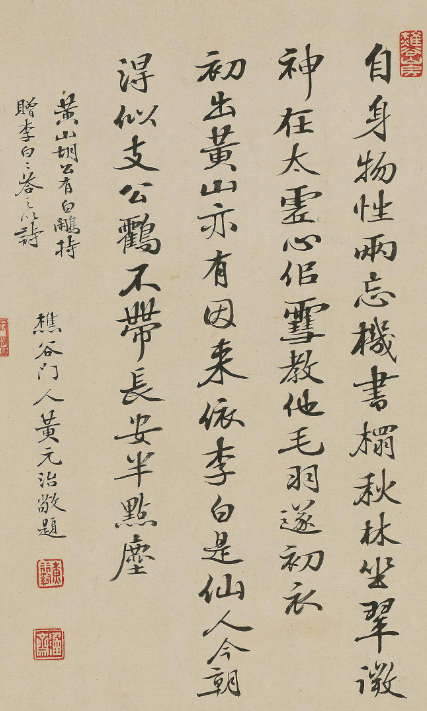 自身物性兩忘機書榻秋林坐翠微
神在太虛心侶雪教他毛羽遂初衣
初出黃山亦有因来依李白是仙人今朝
淂似支公鸖不帶長安半點塵
黃山胡公有白鷴持
贈李白〻荅之以詩
樵谷門人黃元治敬題